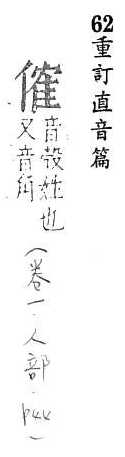 62重訂直音篇
傕
音殼姓也
又音角
(卷一.人部.p44)